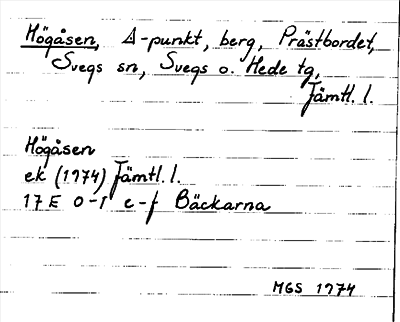 Högåsen, Δ-punkt, berg, Prästbordet,
Svegs sn, Svegs o. Hede tg,
Jämtl. l.
Högåsen
ek (1974) Jämtl. l.
17 E 0-1 e-f Bäckarna
MGS 1974